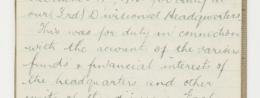 our (3rd) Divisional Headquarters.
This was for duty in connection
with the account of the various
funds & financial interests of
the headquarters and other